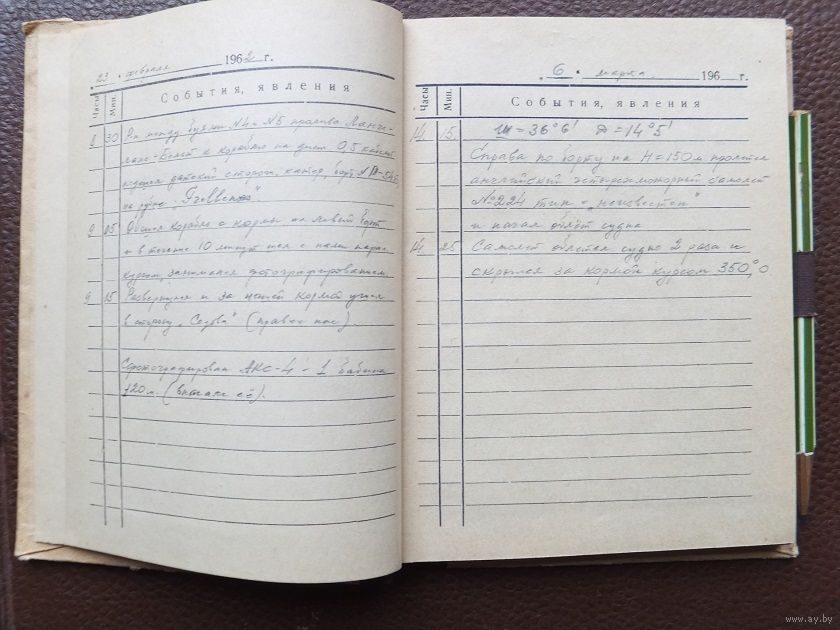 23 • февраля 1962 г.
Часы Мин. События, явления
8 30 На между буями №4 и №5 пролива Ланге-
ланс-Бельт к кораблю на дист. 0,5 кабельт.
подошел датский сторож. катер, борт. №Р-
на рубке
9 05 Обошел корабль с кормы на левый борт
и в течение 10 минут шел с нами парал.
курсом, занимался фотографированием.
9 15 Развернулся и за нашей кормой ушел
в сторону (правее нас).
Сфотографирован АКС-4 - 1 бабина
120 м. (вначале её).
6 • марта 196 г.
Часы Мин. События, явления
14 15 Ш = 36°6' Д = 14°5'
Справа по борту на Н = 150 м прошелся
английский четырехмоторный самолет
№ 224 тип - "неизвестен"
и начал облёт судна
14 25 Самолет облетел судно 2 раза и
скрылся за кормой курсом 350°,0
www.ay.by